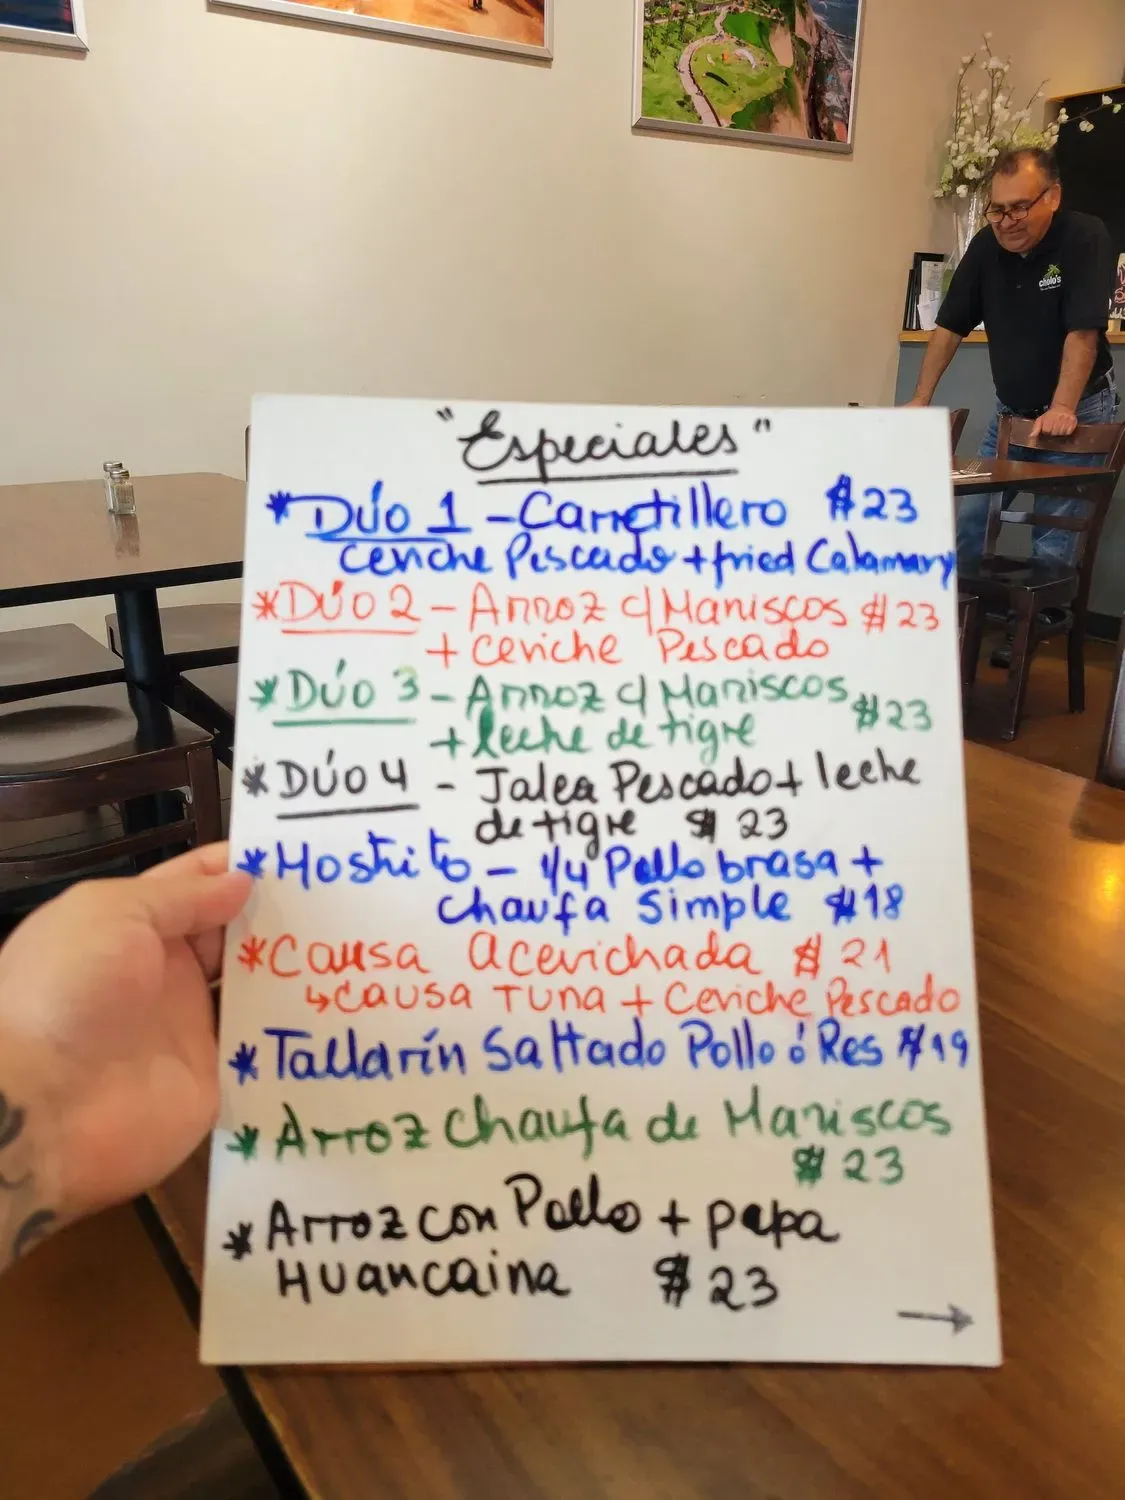 cholo's
"Especiales"
* Dúo 1 - Carretillero $23
Ceviche Pescado + fried Calamary
* Dúo 2 - Arroz c/ Mariscos $23
+ Ceviche Pescado
* Dúo 3 - Arroz c/ Mariscos $23
+ leche de tigre
* Dúo 4 - Jalea Pescado + leche
de tigre $23
* Mostrito - 1/4 Pollo brasa +
chaufa Simple $18
* Causa Acevichada $21
↳ Causa Tuna + Ceviche Pescado
* Tallarín Saltado Pollo ó Res $19
* Arroz Chaufa de Mariscos
$23
* Arroz con Pollo + papa
Huancaina $23
→